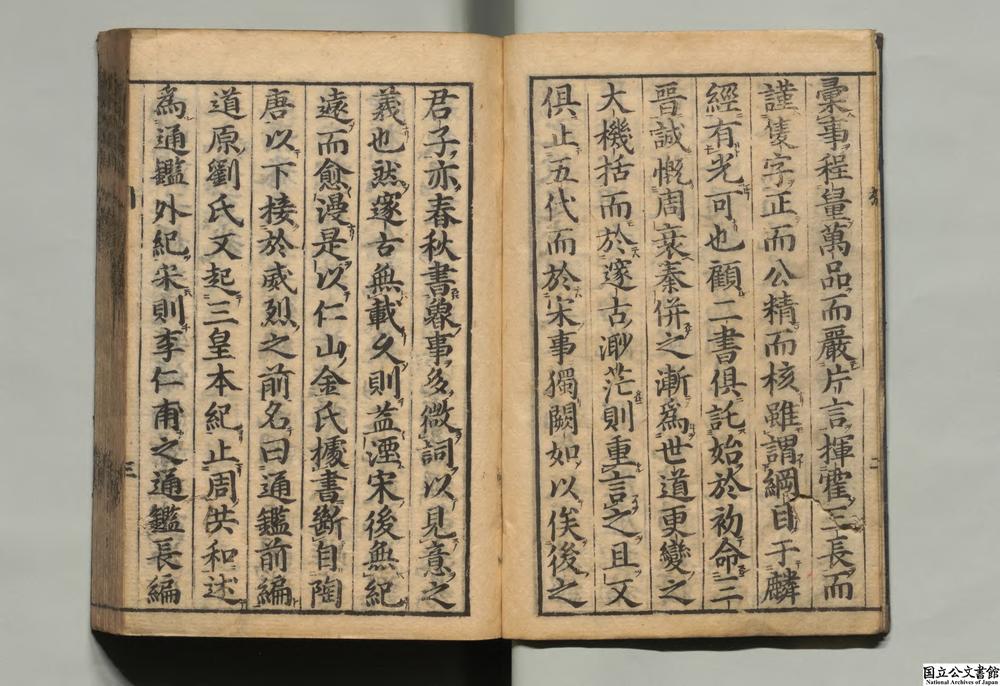 彙事程量萬品而嚴片言揮霍三長而
謹隻字正而公精而核雖謂綱目于麟
經有光可也顧二書俱託始於初命三
晉誠慨周衰秦併之漸為世道更變之
大機括而於邃古渺茫則重言之且又
俱止五代而於宋事獨闕如以俟後之
君子亦春秋書魯事多微詞以見意之
義也然邃古無載久則益湮宋後無紀
遠而愈漫是以仁山金氏據書斷自陶
唐以下接於威烈之前名曰通鑑前編
道原劉氏又起三皇本紀止周共和述
為通鑑外紀宋則李仁甫之通鑑長編
二
三
国立公文書館
National Archives of Japan